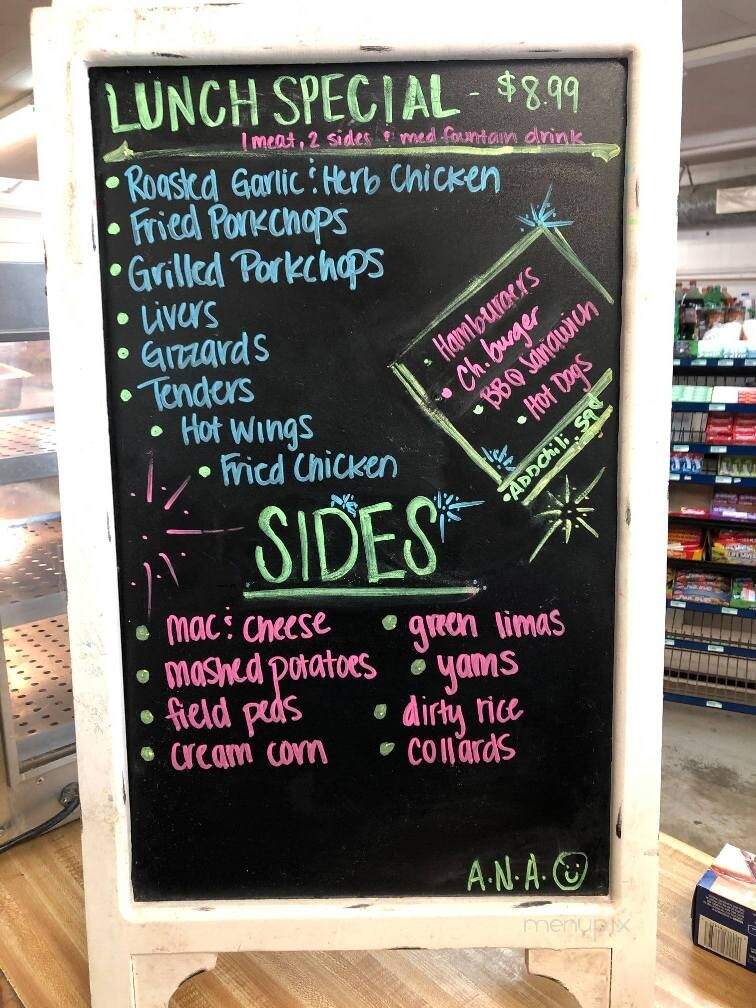 LUNCH SPECIAL - $8.99
1 meat, 2 sides & med fountain drink
• Roasted Garlic & Herb Chicken
• Fried Porkchops
• Grilled Porkchops
• Livers
• Gizzards
• Tenders
• Hot Wings
• Fried Chicken
• Hamburgers
• Ch. burger
• BBQ Sandwich
• Hot Dogs
• ADD Chili .59¢
SIDES
• mac & cheese
• mashed potatoes
• field peas
• cream corn
• green limas
• yams
• dirty rice
• collards
A.N.A.
menupix